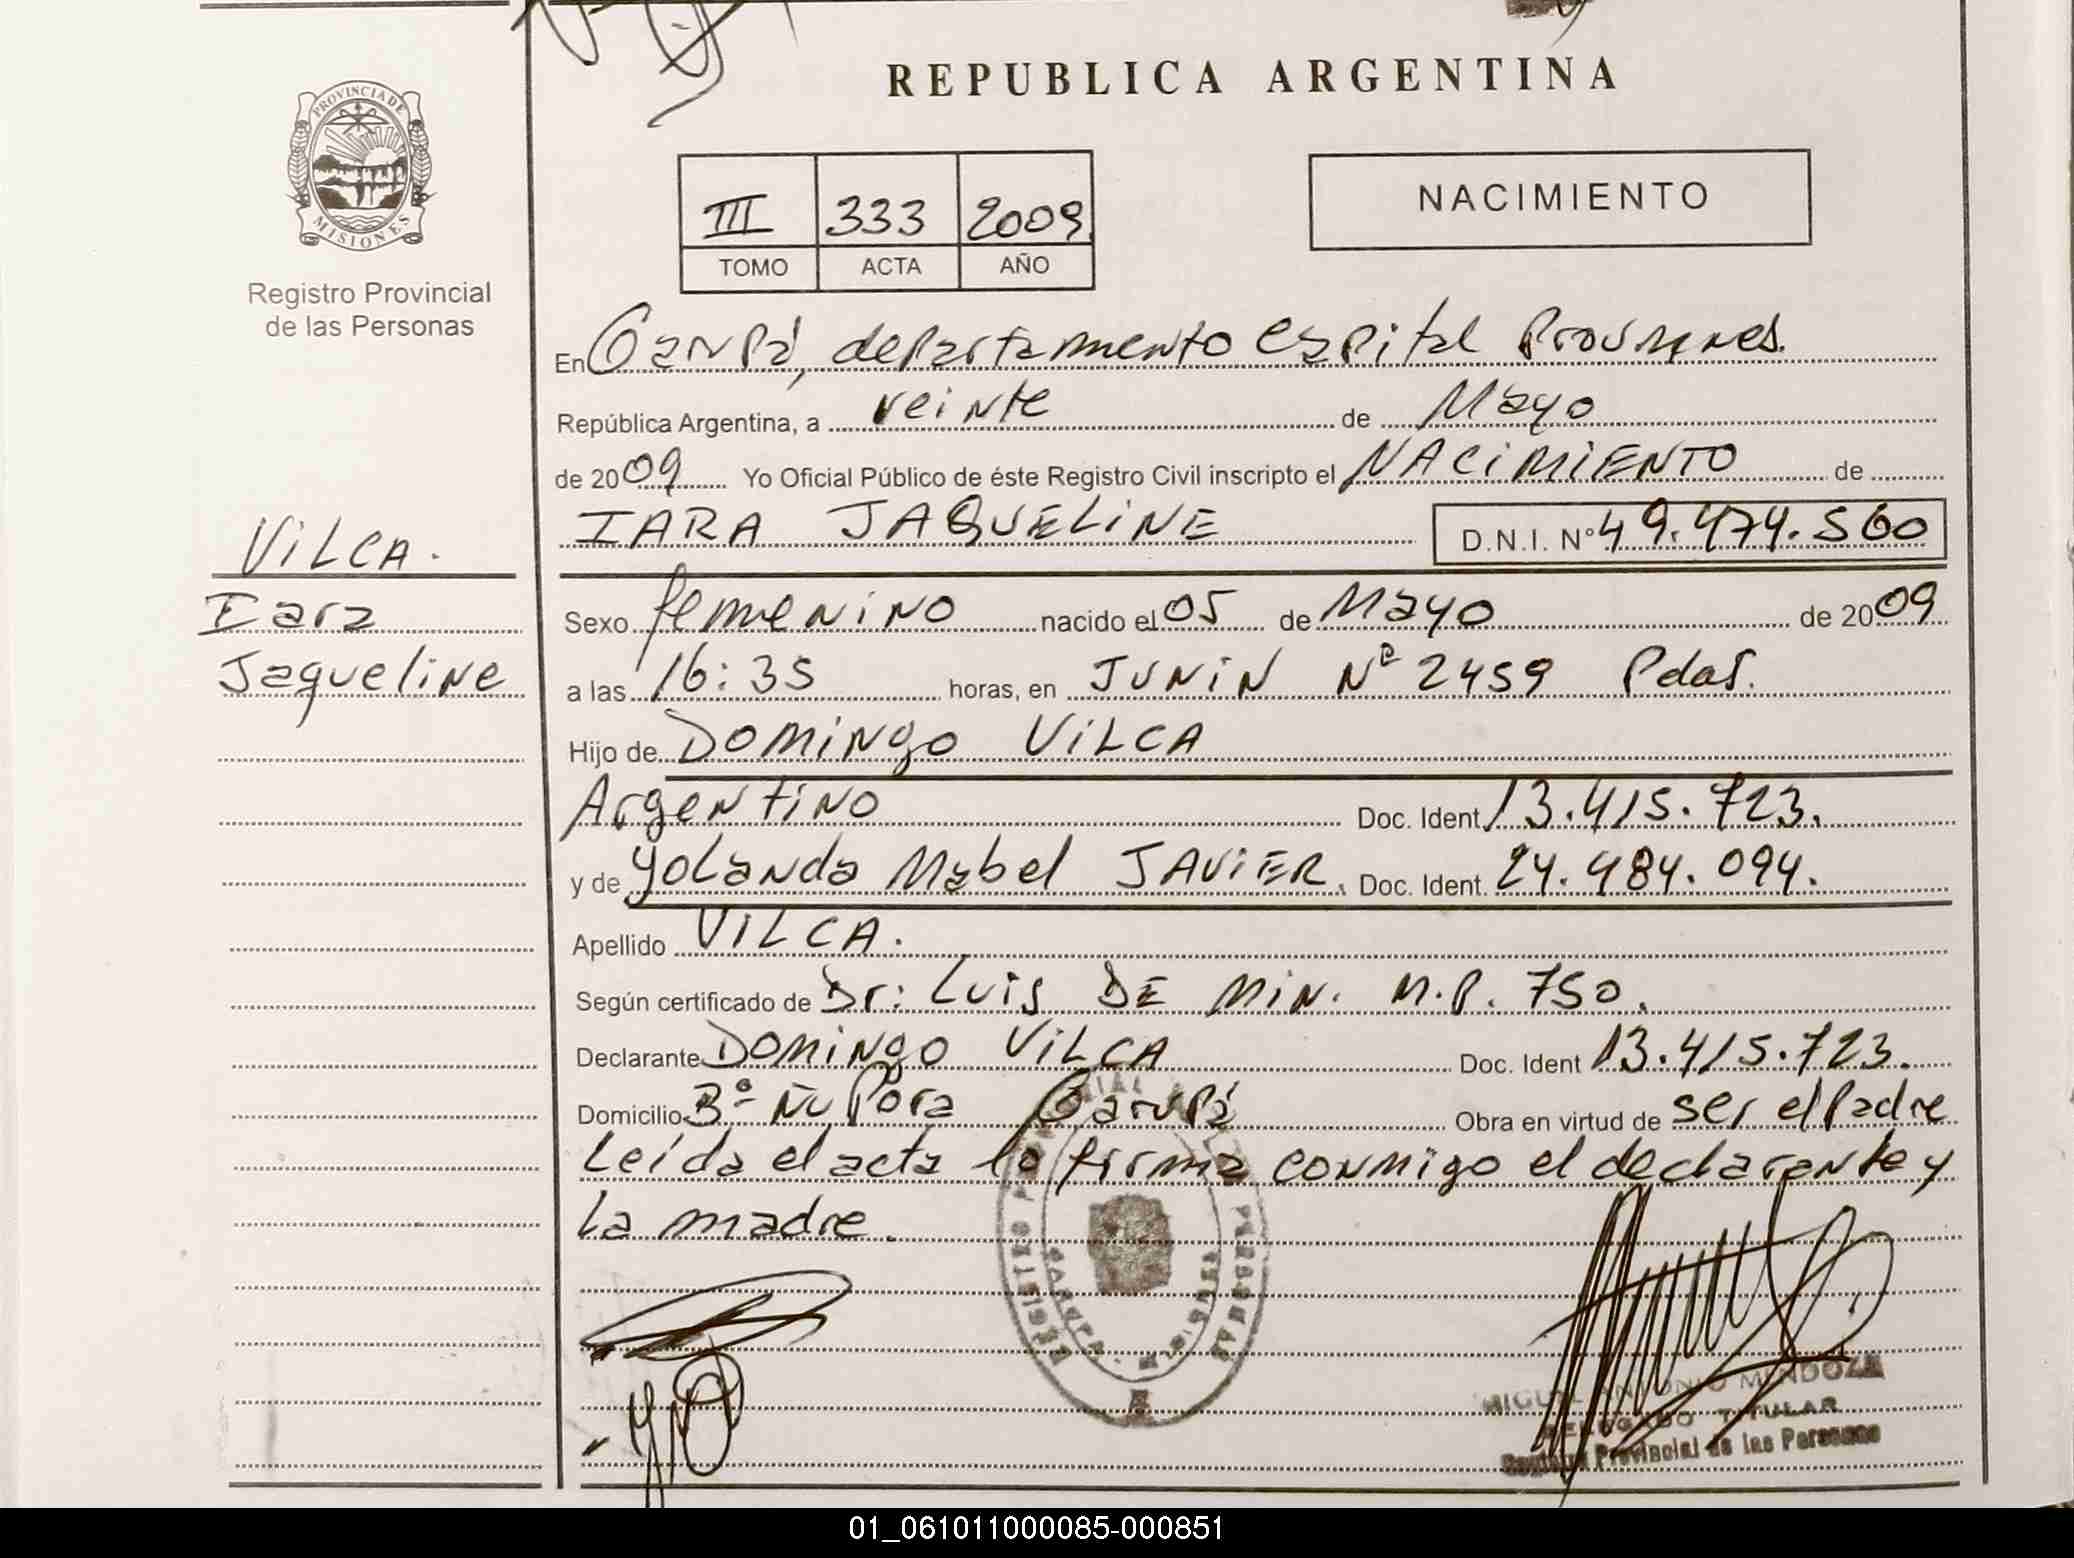 REPUBLICA ARGENTINA
PROVINCIA DE
MISIONES
Registro Provincial
de las Personas
III 333 2009
TOMO ACTA AÑO
NACIMIENTO
En Garupá, departamento Capital
República Argentina, a veinte de Mayo
de 2009 Yo Oficial Público de éste Registro Civil inscripto el NACIMIENTO de
IARA JAQUELINE D.N.I. Nº 49.474.560
VILCA.
Iara
Jaqueline
Sexo femenino nacido el 05 de Mayo de 2009
a las 16:35 horas, en JUNIN Nº 2459 Pdas.
Hijo de DOMINGO VILCA
Argentino Doc. Ident. 13.415.723.
y de Yolanda Mabel JAVIER. Doc. Ident. 24.484.094.
Apellido VILCA.
Según certificado de Dr: LUIS DE MIN. M.P. 750.
Declarante DOMINGO VILCA Doc. Ident 13.415.723.
Domicilio Bº Ñu Pora Garupá Obra en virtud de ser el Padre
Leída el acta la firma conmigo el declarante y
la madre.
MIGUEL ANTONIO MENDOZA
DELEGADO TITULAR
Registro Provincial de las Personas
01_061011000085-000851